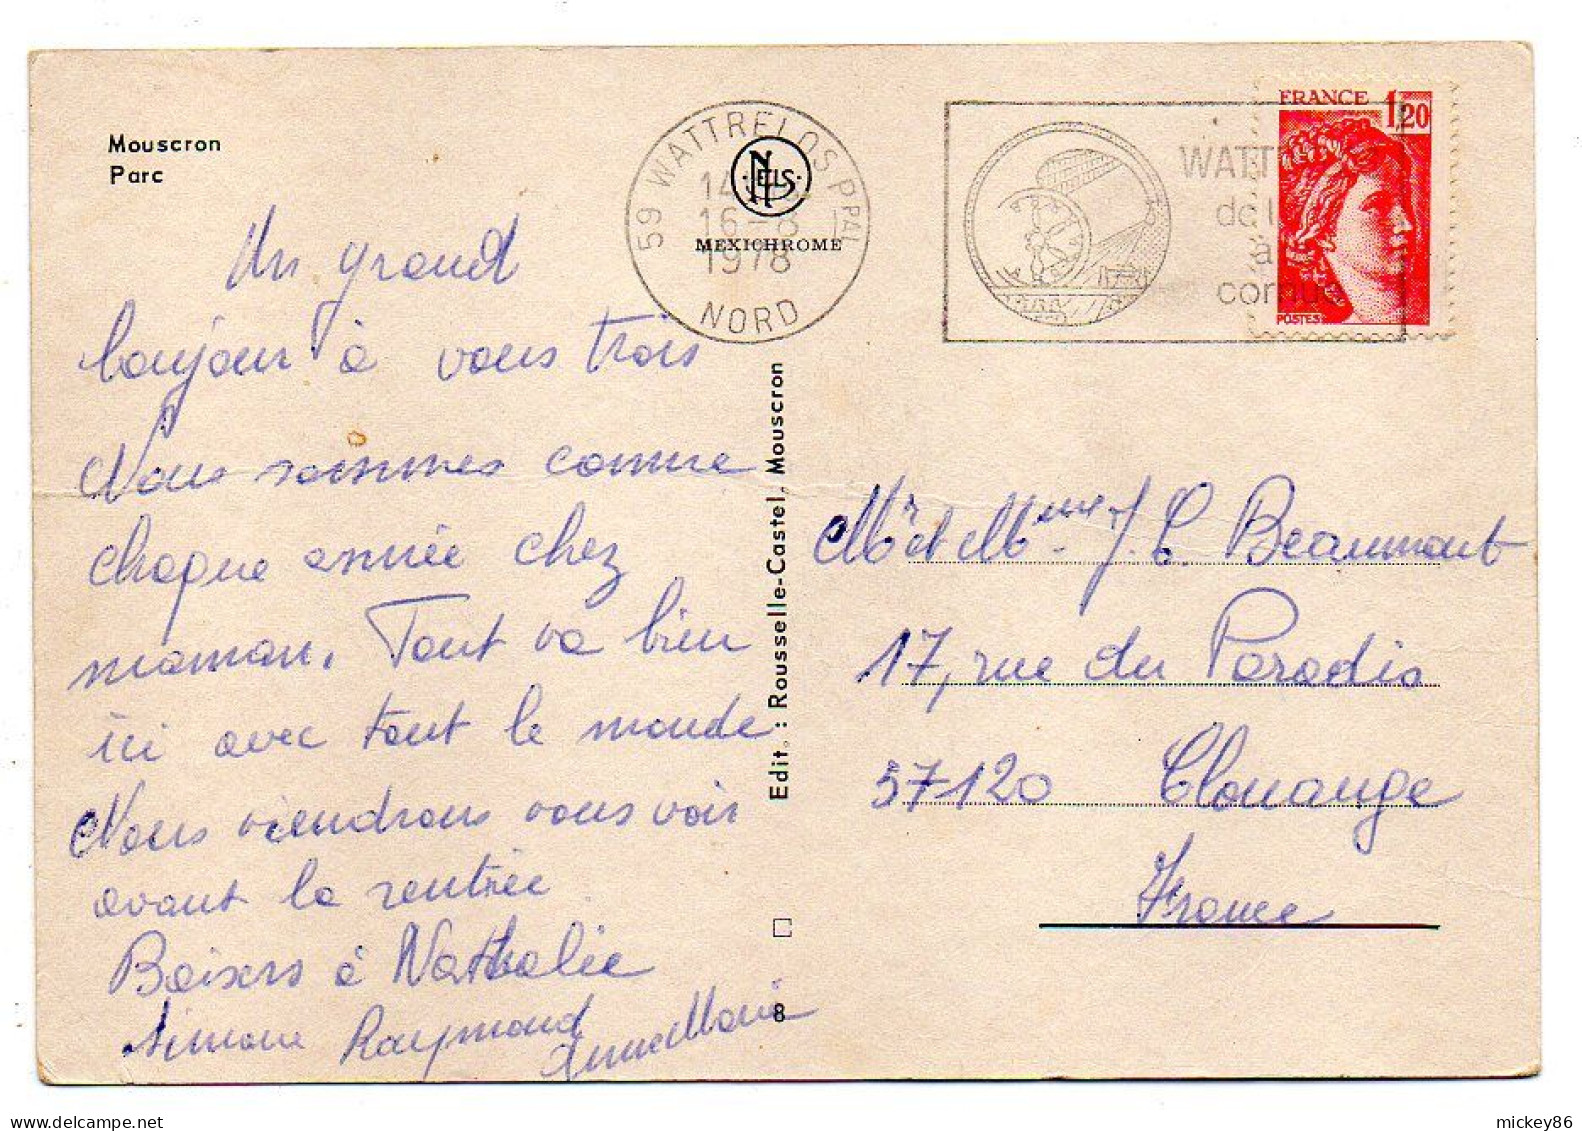 Mouscron
Parc
Un grand
bonjour à vous trois
Nous sommes comme
chaque année chez
maman. Tout va bien
ici avec tout le monde
Nous viendrons vous voir
avant la rentrée
Baisers à Nathalie
Simone Raymond
Anne Marie
NELS
MEXICHROME
59 WATTRELOS PPAL
14
16-8
1978
NORD
Edit. : Rousselle-Castel, Mouscron
8
WATT
de l
à
cornue
FRANCE 1,20
POSTES
Mr et Mme J. C. Beaumont
17, rue du Paradis
57120 Clouange
France
mickey86